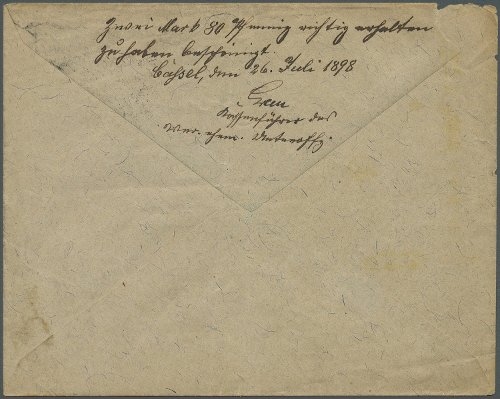 Zwei Mark 80 Pfennig richtig erhalten
zu haben bescheinigt.
Cassel, den 26. Juli 1898
Kassenführer des
Ver. ehem. Unteroffz.